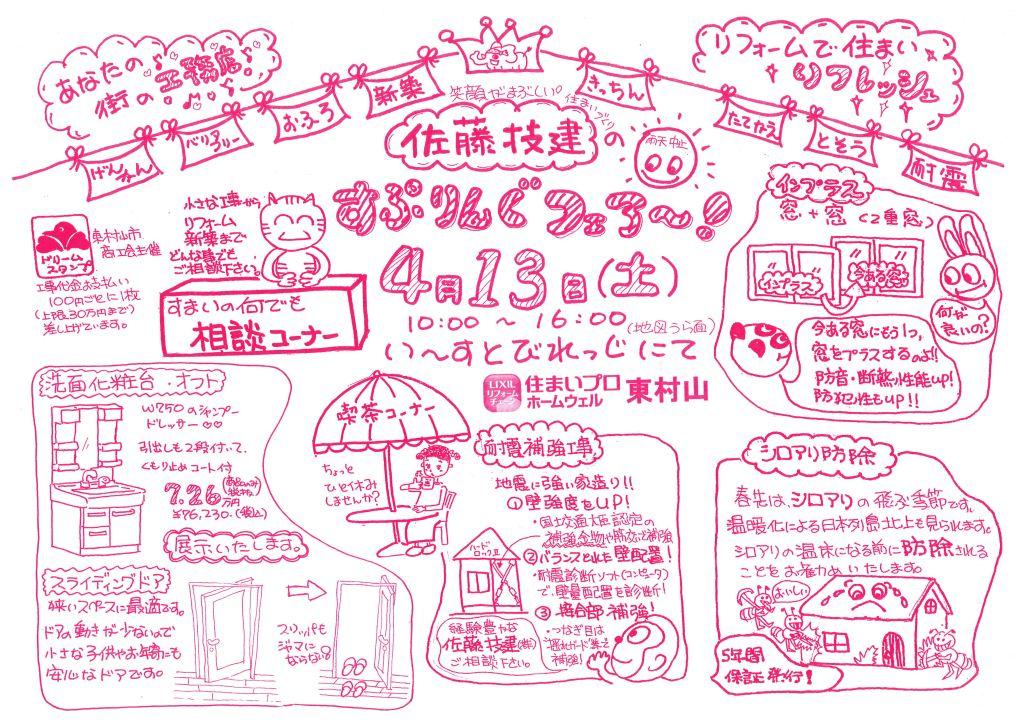 あなたの
街の工務店!
げんかん
バリアフリー
おふろ
新築
きっちん
たてかえ
とそう
耐震
リフォームで住まい
リフレッシュ
笑顔がまぶしい。
住まいづくり
佐藤技建の
雨天中止
すぷりんぐフェア〜!
4月13日(土)
10:00〜16:00
(地図うら面)
い〜すとびれっじにて
LIXIL
リフォーム
チェーン
住まいプロ
ホームウェル
東村山
ドリーム
スタンプ
東村山市
商工会主催
工事代金お支払い
100円ごとに1枚
(上限30万円まで)
差し上げています。
小さな工事から
リフォーム
新築まで
どんな事でも
ご相談下さい。
すまいの何でも
相談コーナー
インプラス
窓+窓(2重窓)
インプラス
今ある窓
何が
良いの?
今ある窓にもう1つ、
窓をプラスするのよ!!
防音・断熱性能UP!
防犯性もUP!!
洗面化粧台・オフト
W750のシャンプー
ドレッサー♡♡
引出しも2段付いて、
くもり止めコート付
7.26万円
¥76,230.(税込)
展示いたします。
喫茶コーナー
ちょっと
ひと休み
しませんか?
スライディングドア
狭いスペースに最適です。
ドアの動きが少ないので
小さな子供やお年寄にも
安心なドアです。
スリッパも
ジャマに
ならない
耐震補強工事
地震に強い家造り!!
①壁強度をUP!
・国土交通大臣認定の
補強金物や筋交で補強
②バランスとれた壁配置!
・耐震診断ソフト(コンピータ)
で、壁量配置を診断!
③接合部補強!
・つなぎ目は
補強!
経験豊かな
佐藤技建(株)
ご相談下さい。
シロアリ防除
春先は、シロアリの飛ぶ季節です。
温暖化による日本列島北上も見られます。
シロアリの温床になる前に防除される
ことをお薦めいたします。
おいしい
5年間
保証発行!